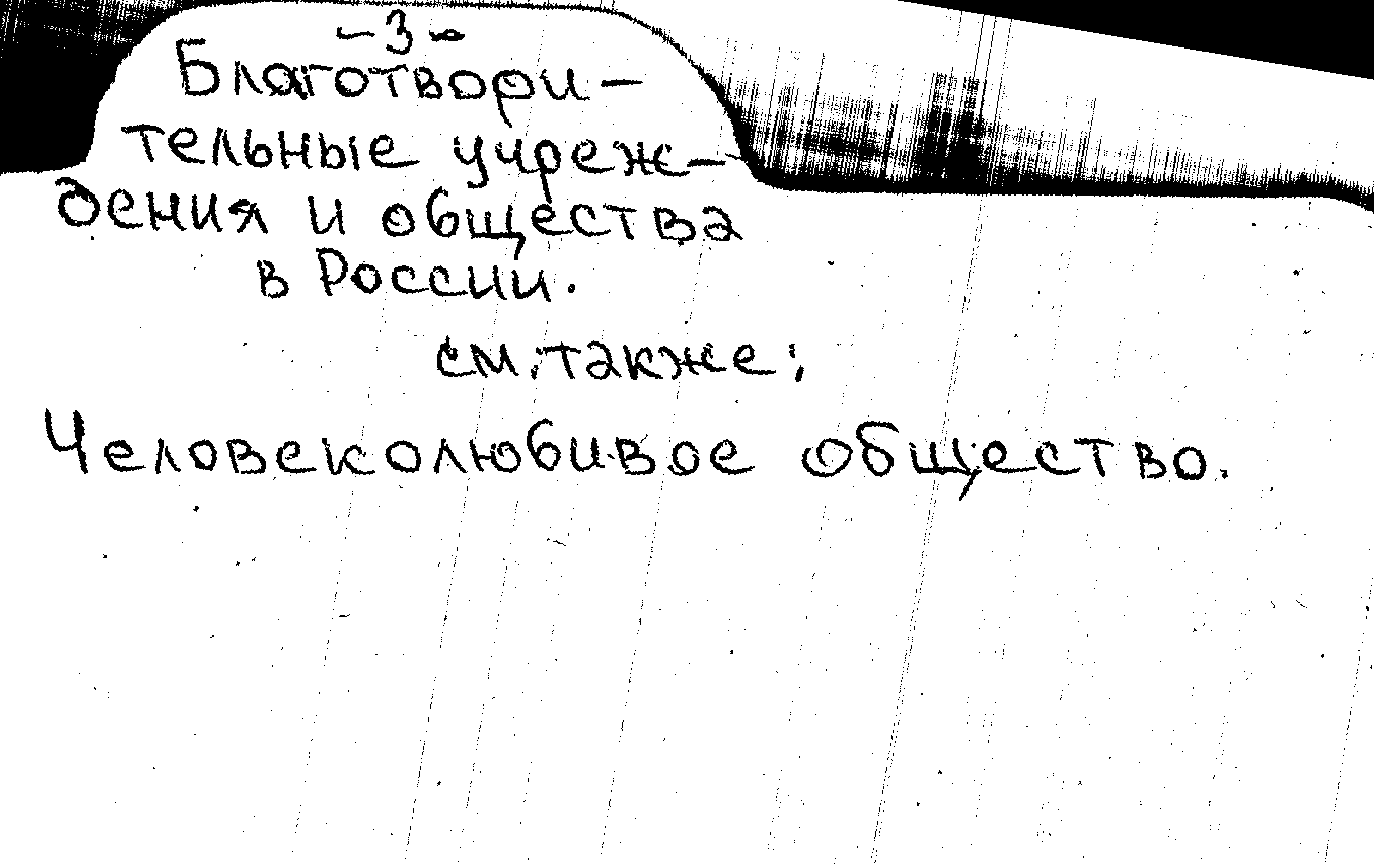 -3-
Благотвори-
тельные учреж-
дения и общества
в России.
см. также:
Человеколюбивое общество.